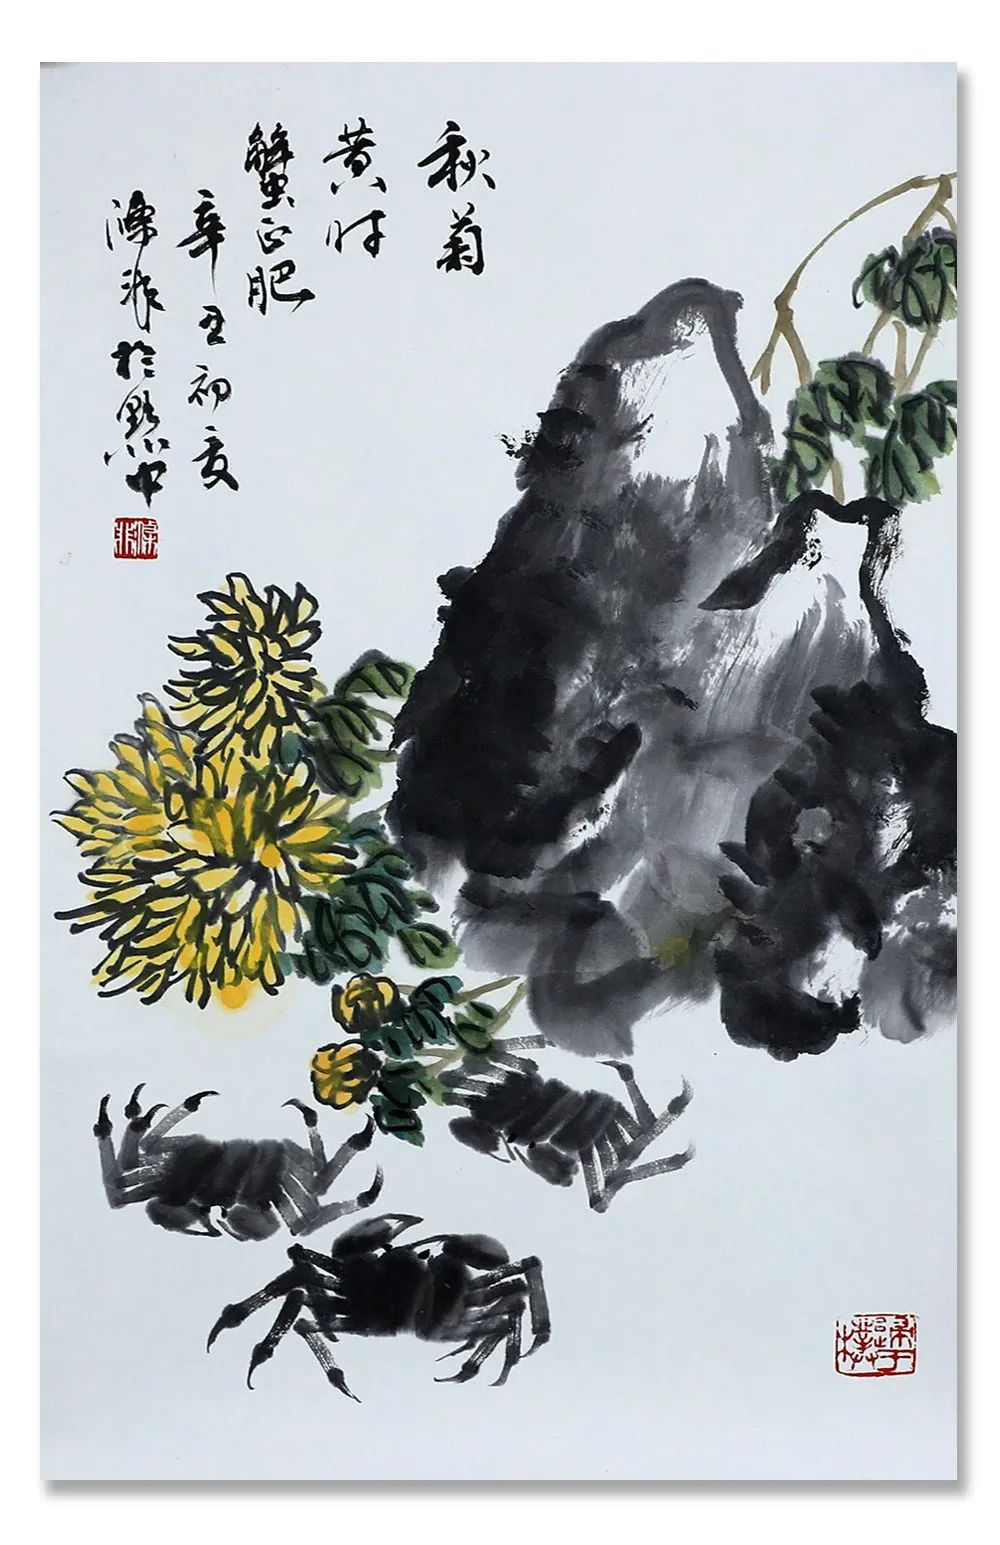 秋菊
黄时
蟹正肥
辛丑初夏
非於黔中